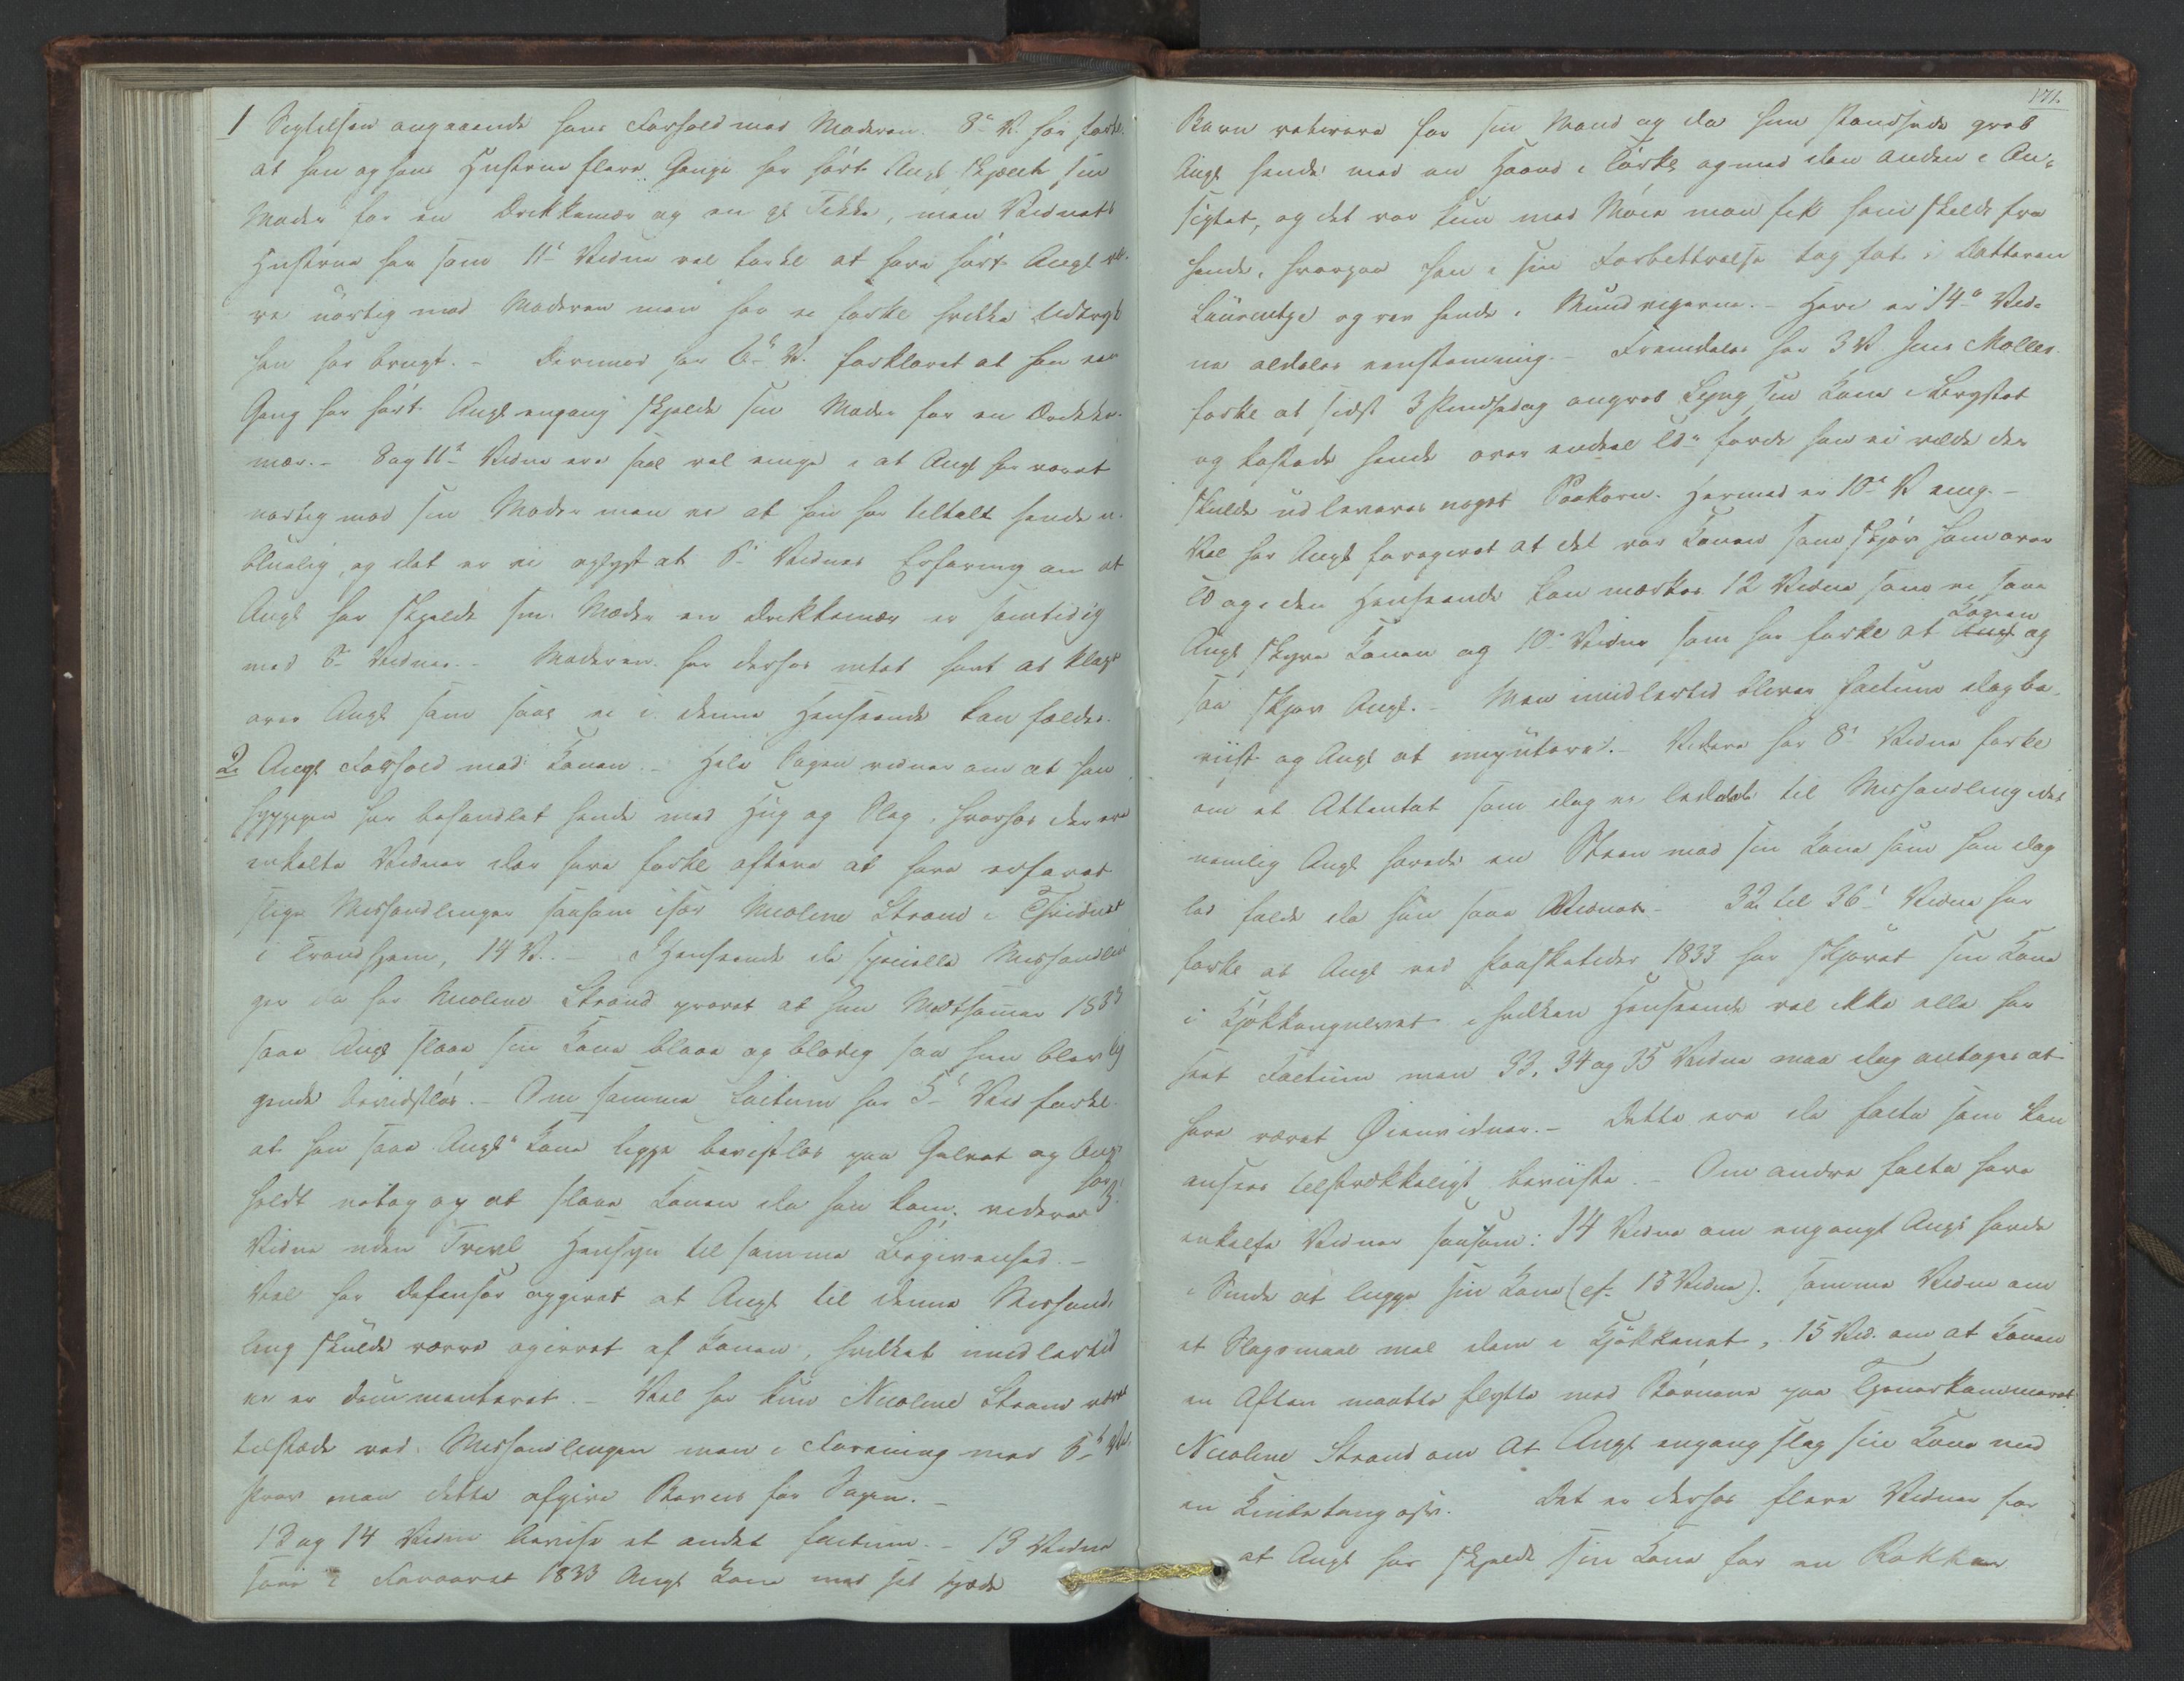 1 Sigtelsen angaaende hans Forhold mod Moderen. 8de V. har forkl.
at han og hans Hustrue flere Gange har hørt Angl skjælde sin
Moder for en Drikkemær og en gl Tikke, men Vidnets
Hustrue har som 11te Vidne vel forkl at have hørt Angl væ-
re uartig mod Moderen men har ei forkl hvilke Udtryk
han har brugt. - Derimod har 6te V. forklaret at han een
Gang har hørt Angl engang skjælde sin Moder for en Drikke-
mær. - 8 og 11te Vidne ere saal vel enige i at Angl har været
uartig mod sin Moder men ei at han har tiltalt hende u-
bluelig, og det er ei oplyst at 6te Vidnes Erfaring om at
Angl har skjældt sin Moder en Drikkemær er samtidig
med 8de Vidnes. - Moderen har derhos intet havt at klage
over Angl som saal ei i denne Henseende kan fældes.
2 Angl Forhold mod Konen. - Hele Sagen vidner om at han
hyppigen har behandlet hende med Hug og Slag, hvorhos der ere
enkelte Vidner der have forkl oftere at have erfaret
slige Mishandlinger saasom især Nicoline Strand i Thvidnet
i Trondhjem, 14 V. - I Henseende de specielle Mishandlin-
ger da har Nicoline Strand provet at hun Midtsommer 1833
saae Angl slaae sin Kone blaae og blodig saa hun blev lig-
gende bevidstløs. - Om samme Factum har 5te Vid forkl.
at han saae Angls Kone ligge bevistløs paa Gulvet og Angl
holdt netop op at slaae Konen da han kom. videre har 13
Vidne uden Tvivl Hensyn til samme Begivenhed. -
Vel har Defensor opgivet at Angl til denne Mishand-
ling skulde været ægirret af Konen, hvilket imidlertid
ei er documenteret. - Vel har kun Nicoline Strand været
tilstæde ved Mishandlingen men i Forening med 5te Vid
Prov maa dette afgive Beviis for Sagen. -
13 og 14 Vidne bevise et andet factum. - 13 Vidne
saae i Foraaret 1833 Angl Kone med sit spæde
171.
Barn retirere for sin Mand og da hun standsede greb
Angl hende med en Haand i Tørkl og med den anden i An-
sigtet, og det var kun med Møie man fik ham skildt fra
hende, hvorpaa han i sin Forbittrelse tog fat i Datteren
Laurentze og rev hende i Mundvigerne. - Heri er 14de Vid-
ne aldeles eenstemmig. - Fremdeles har 3 V. Jens Møller
forkl at sidst 3 Pindsedag angreb Lyng sin Kone i Brystet
og kastede hende over endeel Ved fordi han ei vilde der
skulde udleveres noget Saakorn. Hermed er 10de V enig. -
Vel har Angl foregivet at det var Konen som skjøv ham over
Ved og i den Henseende kan mærkes 12 Vidne som ei saae
Konen
Angl skyve Konen og 10de Vidne som har forkl at Angl og
saa skjøv Angl. - Men imidlertid bliver factum dog be-
viist og Angl at imputere. - Videre har 8de Vidne forkl
om et Attentat som dog ei leddede til Mishandling idet
nemlig Angl hævede en Steen mod sin Kone som han dog
lod falde da han saae Vidnet. - 32 til 36te Vidne har
forkl at Angl ved Paasketider 1833 har skjøvet sin Kone
i Kjøkkengulvet i hvilken Henseende vel ikke alle har
seet Factum men 33, 34 og 35 Vidne maa dog antages at
have været Øienvidner. - Dette ere de facta som kan
ansees tilstrækkeligt beviiste. - Om andre facta have
enkelte Vidner saasom: 14 Vidne om engangl Angl havde
i Sinde at lugge sin Kone (cf. 15 Vidne). samme Vidne om
et Slagsmaal mel dem i Kjøkkenet, 15 Vid. om at Konen
en Aften maatte flytte med Børnene paa Tjenerkammeret
Nicoline Strand om at Angl engang slog sin Kone med
en Knibetang osv. Det er derhos flere Vidner for
at Angl har skjældt sin Kone for en Rakker